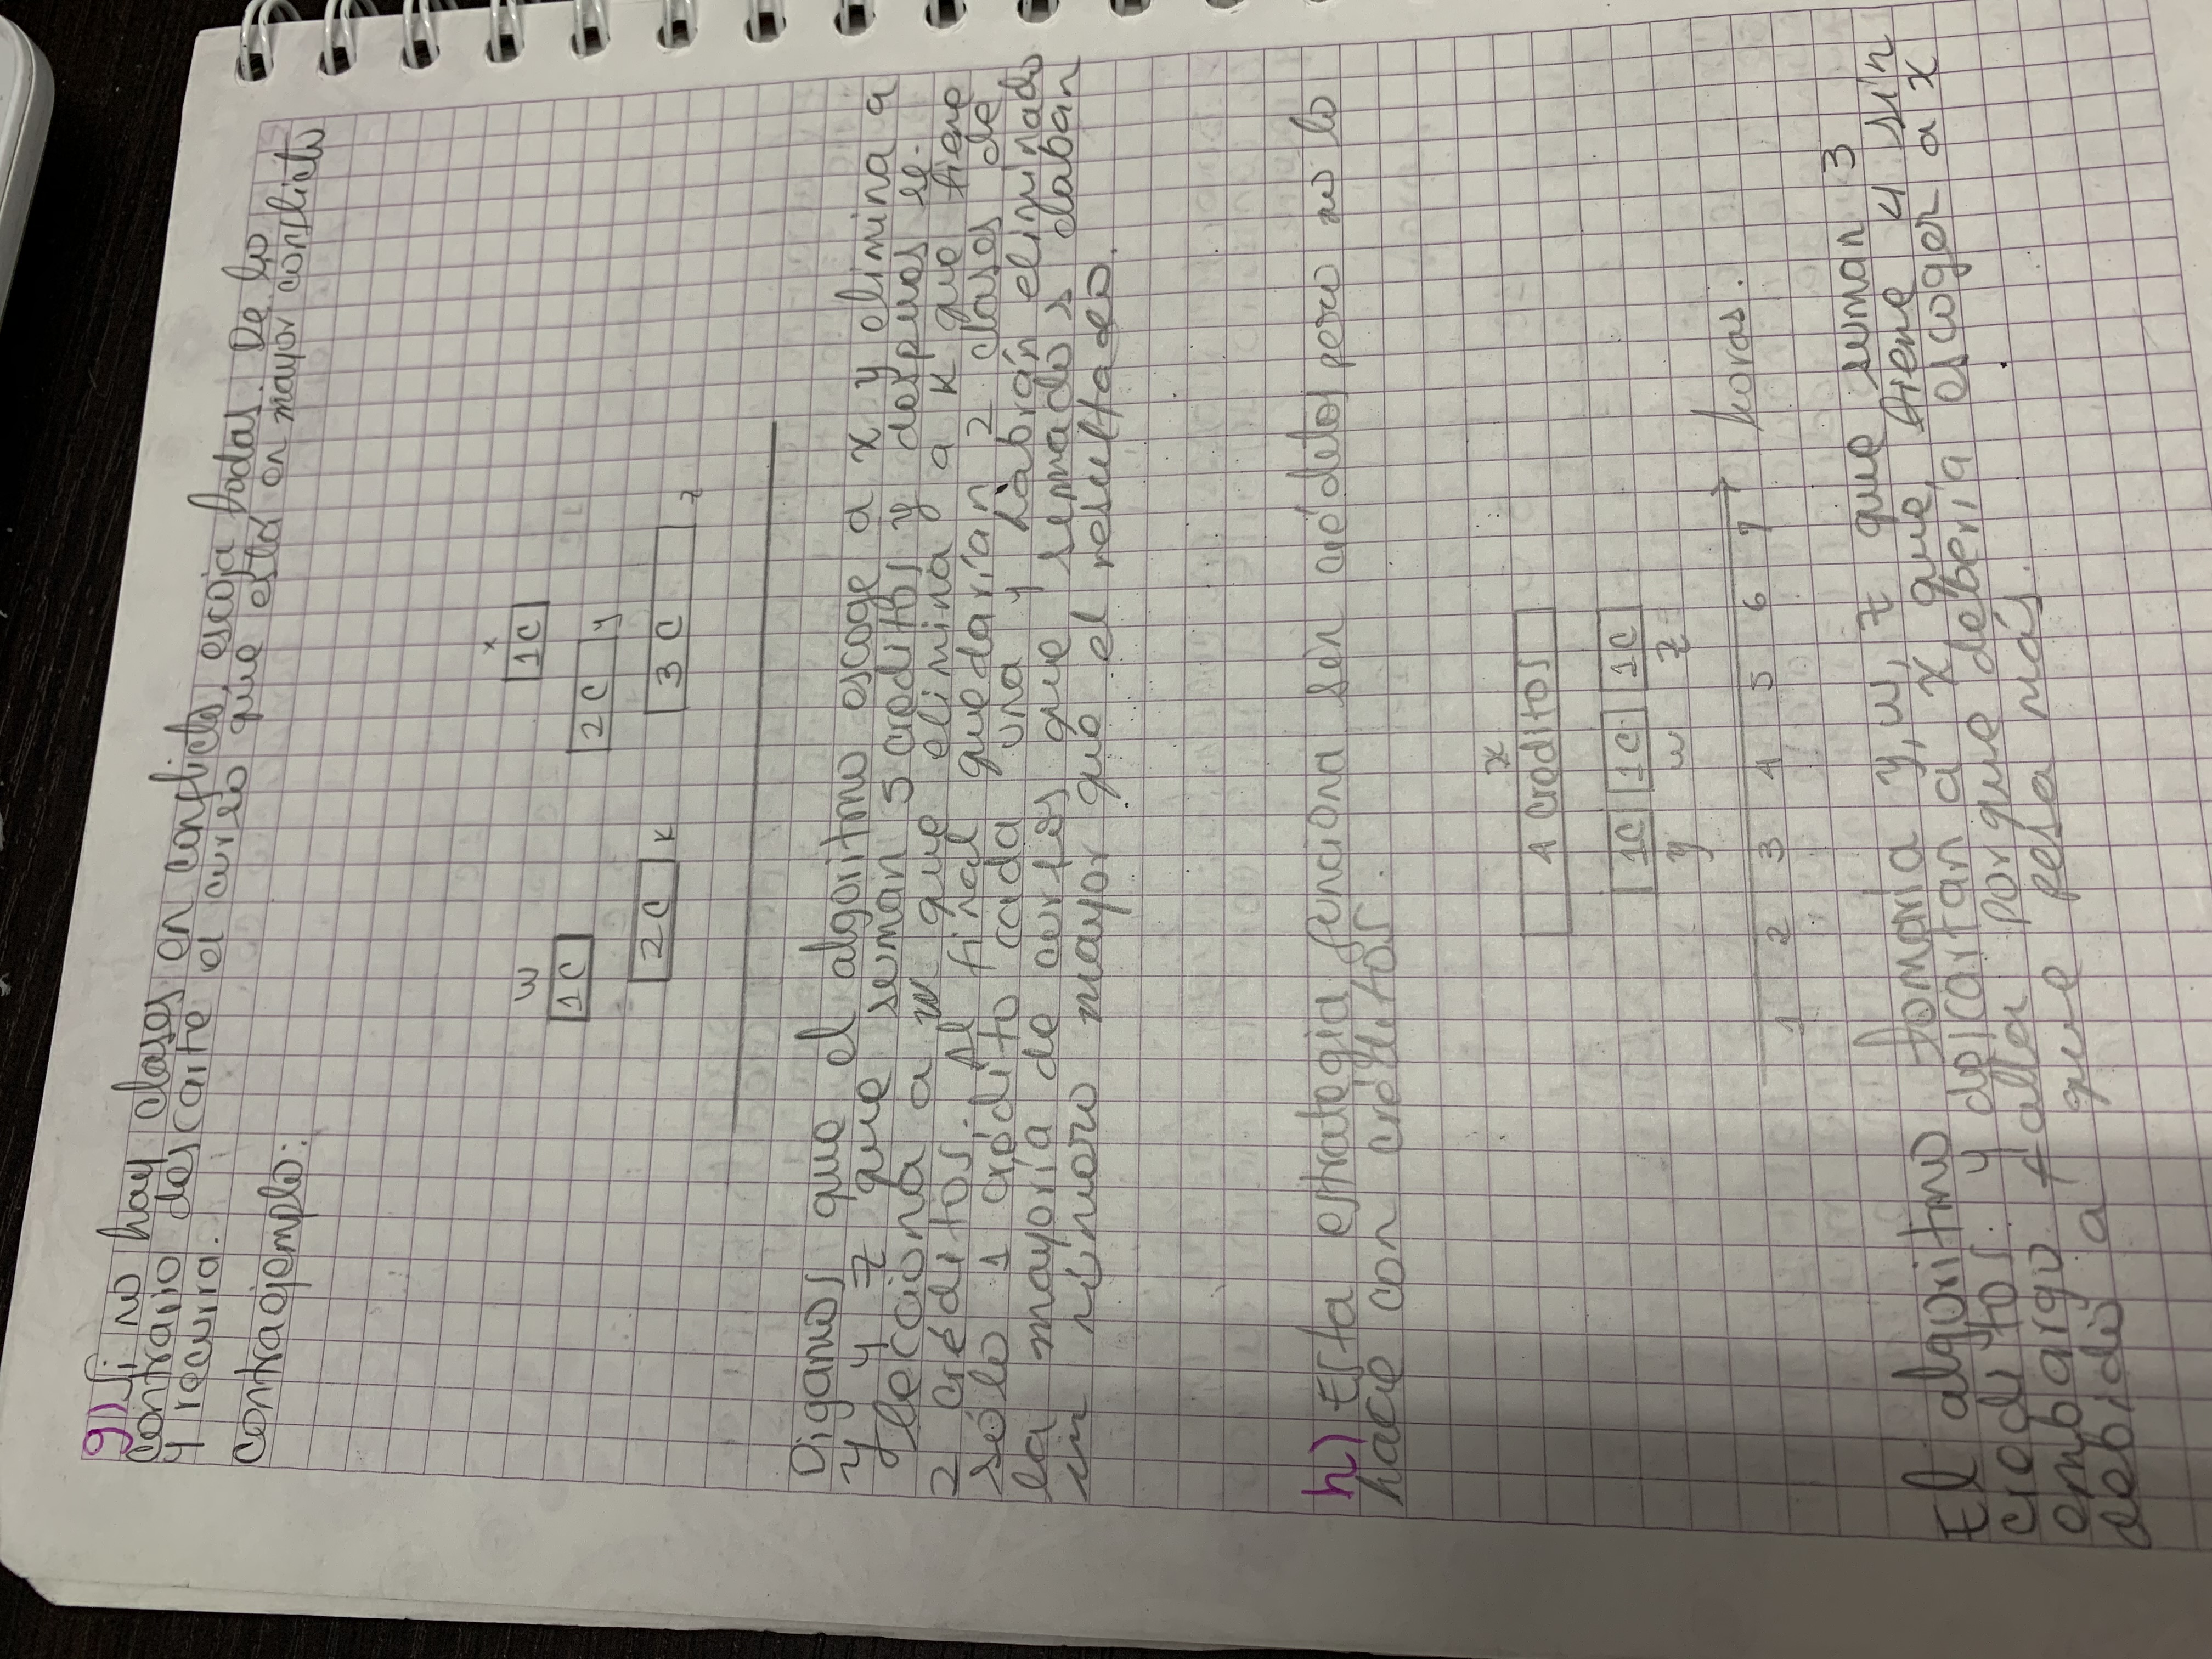 g) Si no hay clases en conflicto, escoja todas. De lo
contrario descarte el curso que está en mayor conflicto
y recurra.
contraejemplo:
x
1 C
w
1 C
2 C y
2 C k
3 C z
Digamos que el algoritmo escoge a x y elimina a
y y z que suman 5 creditos y despues se-
lecciona a w que elimina a k que tiene
2 créditos. Al final quedarían 2 clases de
sólo 1 crédito cada una y habrán eliminado
la mayoría de cursos que sumados daban
un número mayor que el resultado.
h) Esta estrategia funciona sin créditos pero no lo
hace con créditos.
x
4 creditos
1C 1C 1C
y w z
1 2 3 4 5 6 7 horas.
El algoritmo tomaría y, w, z que suman 3
creditos y descartan a x que tiene 4 sin
embargo falla porque debería escoger a x
debido a que pesa más.